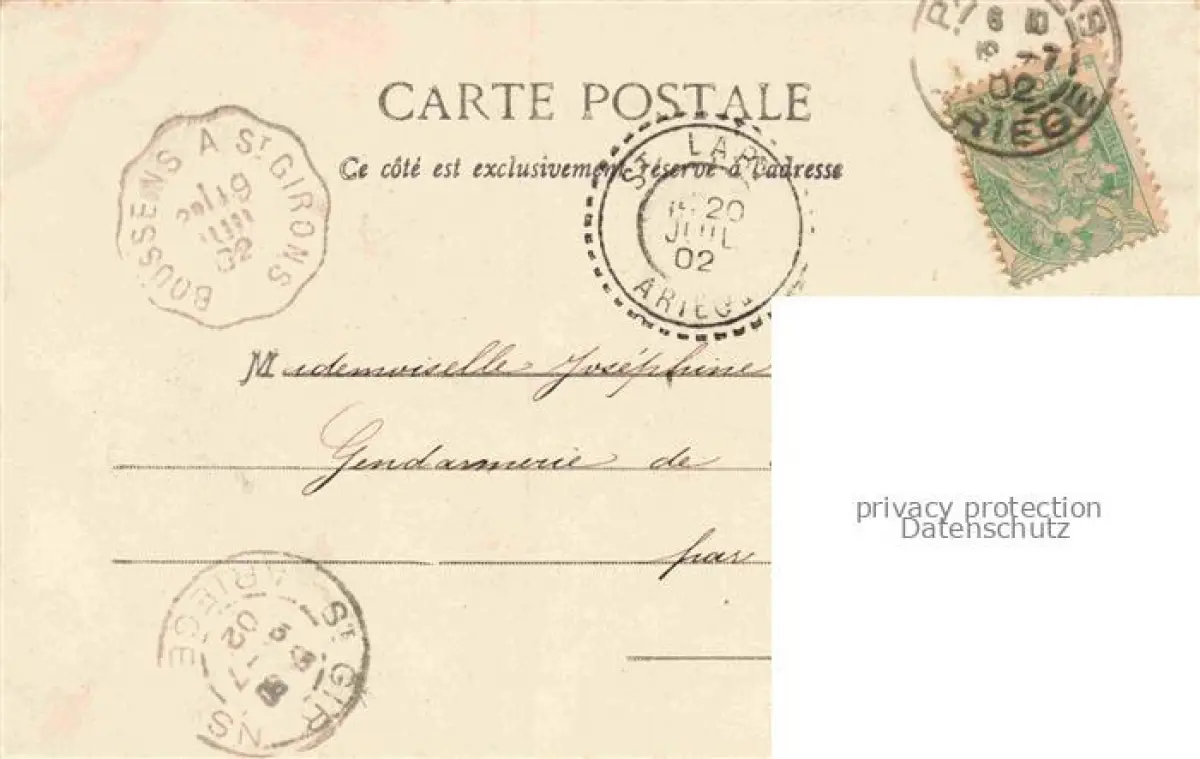 CARTE POSTALE
Ce côté est exclusivement réservé à l'adresse
BOUSSENS A ST GIRONS
19
JUIL
02
ST LARY
20
JUIL
02
ARIEGE
02
ARIEGE
Mademoiselle Joséphine
Gendarmerie de
par
ST GIRONS
ARIEGE
02
privacy protection
Datenschutz